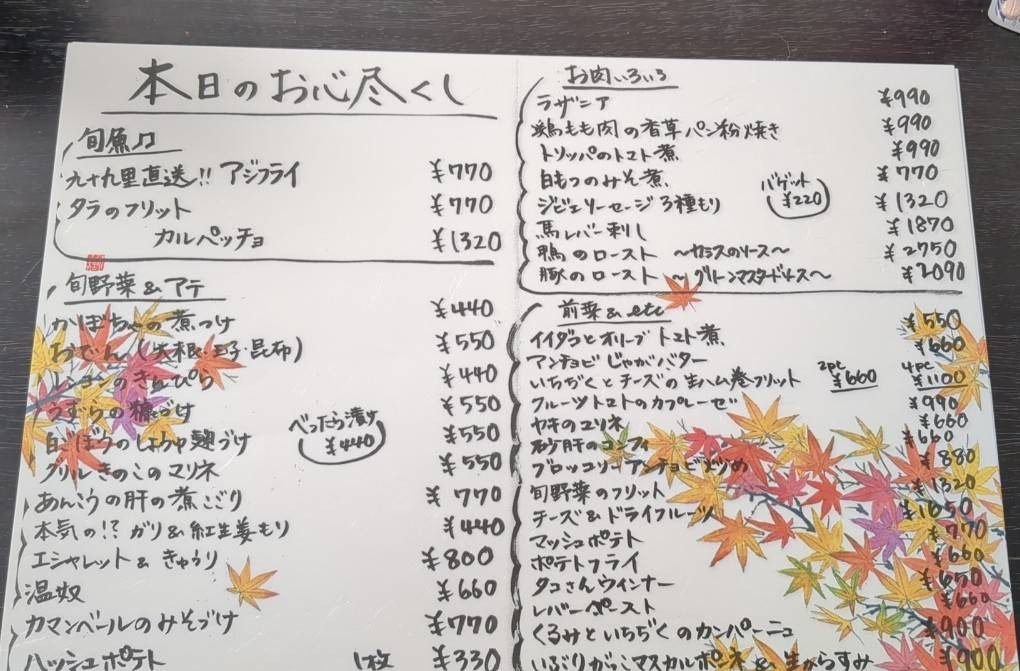 本日のお心尽くし
旬魚♫
九十九里直送!! アジフライ ¥770
タラのフリット ¥770
カルパッチョ ¥1320
旬野菜&アテ
かぼちゃの煮つけ ¥440
おでん(大根・玉子・昆布) ¥550
レンコンのきんぴら ¥440
うずらの糠づけ ¥550
白ごぼうのしょうゆ麹づけ ¥550
べったら漬け ¥440
グリルきのこのマリネ ¥550
あんこうの肝の煮こごり ¥770
本気の!? ガリ&紅生姜もり ¥440
エシャレット&きゅうり ¥800
温奴 ¥660
カマンベールのみそづけ ¥770
ハッシュポテト 1枚 ¥330
お肉いろいろ
ラザニア ¥990
鶏もも肉の香草パン粉焼き ¥990
トリッパのトマト煮 ¥990
白もつのみそ煮 ¥770
バゲット ¥220
ジビエソーセージ3種もり ¥1320
馬レバー刺し ¥1870
鴨のロースト 〜カシスのソース〜 ¥2750
豚のロースト 〜グリーンマスタードソース〜 ¥2090
前菜&etc
イイダコとオリーブトマト煮 ¥550
アンチョビじゃがバター ¥660
いちぢくとチーズの生ハム巻フリット 2pc ¥660 4pc ¥1100
フルーツトマトのカプレーゼ ¥990
ヤキのマリネ ¥660
砂肝のコンフィ ¥660
ブロッコリーアンチョビどりめ ¥880
旬野菜のフリット ¥1320
チーズ&ドライフルーツ ¥1650
マッシュポテト ¥770
ポテトフライ ¥660
タコさんウインナー ¥650
レバーペースト ¥660
くるみといちぢくのカンパーニュ ¥900
いぶりがっこマスカルポーネ&生からすみ ¥900